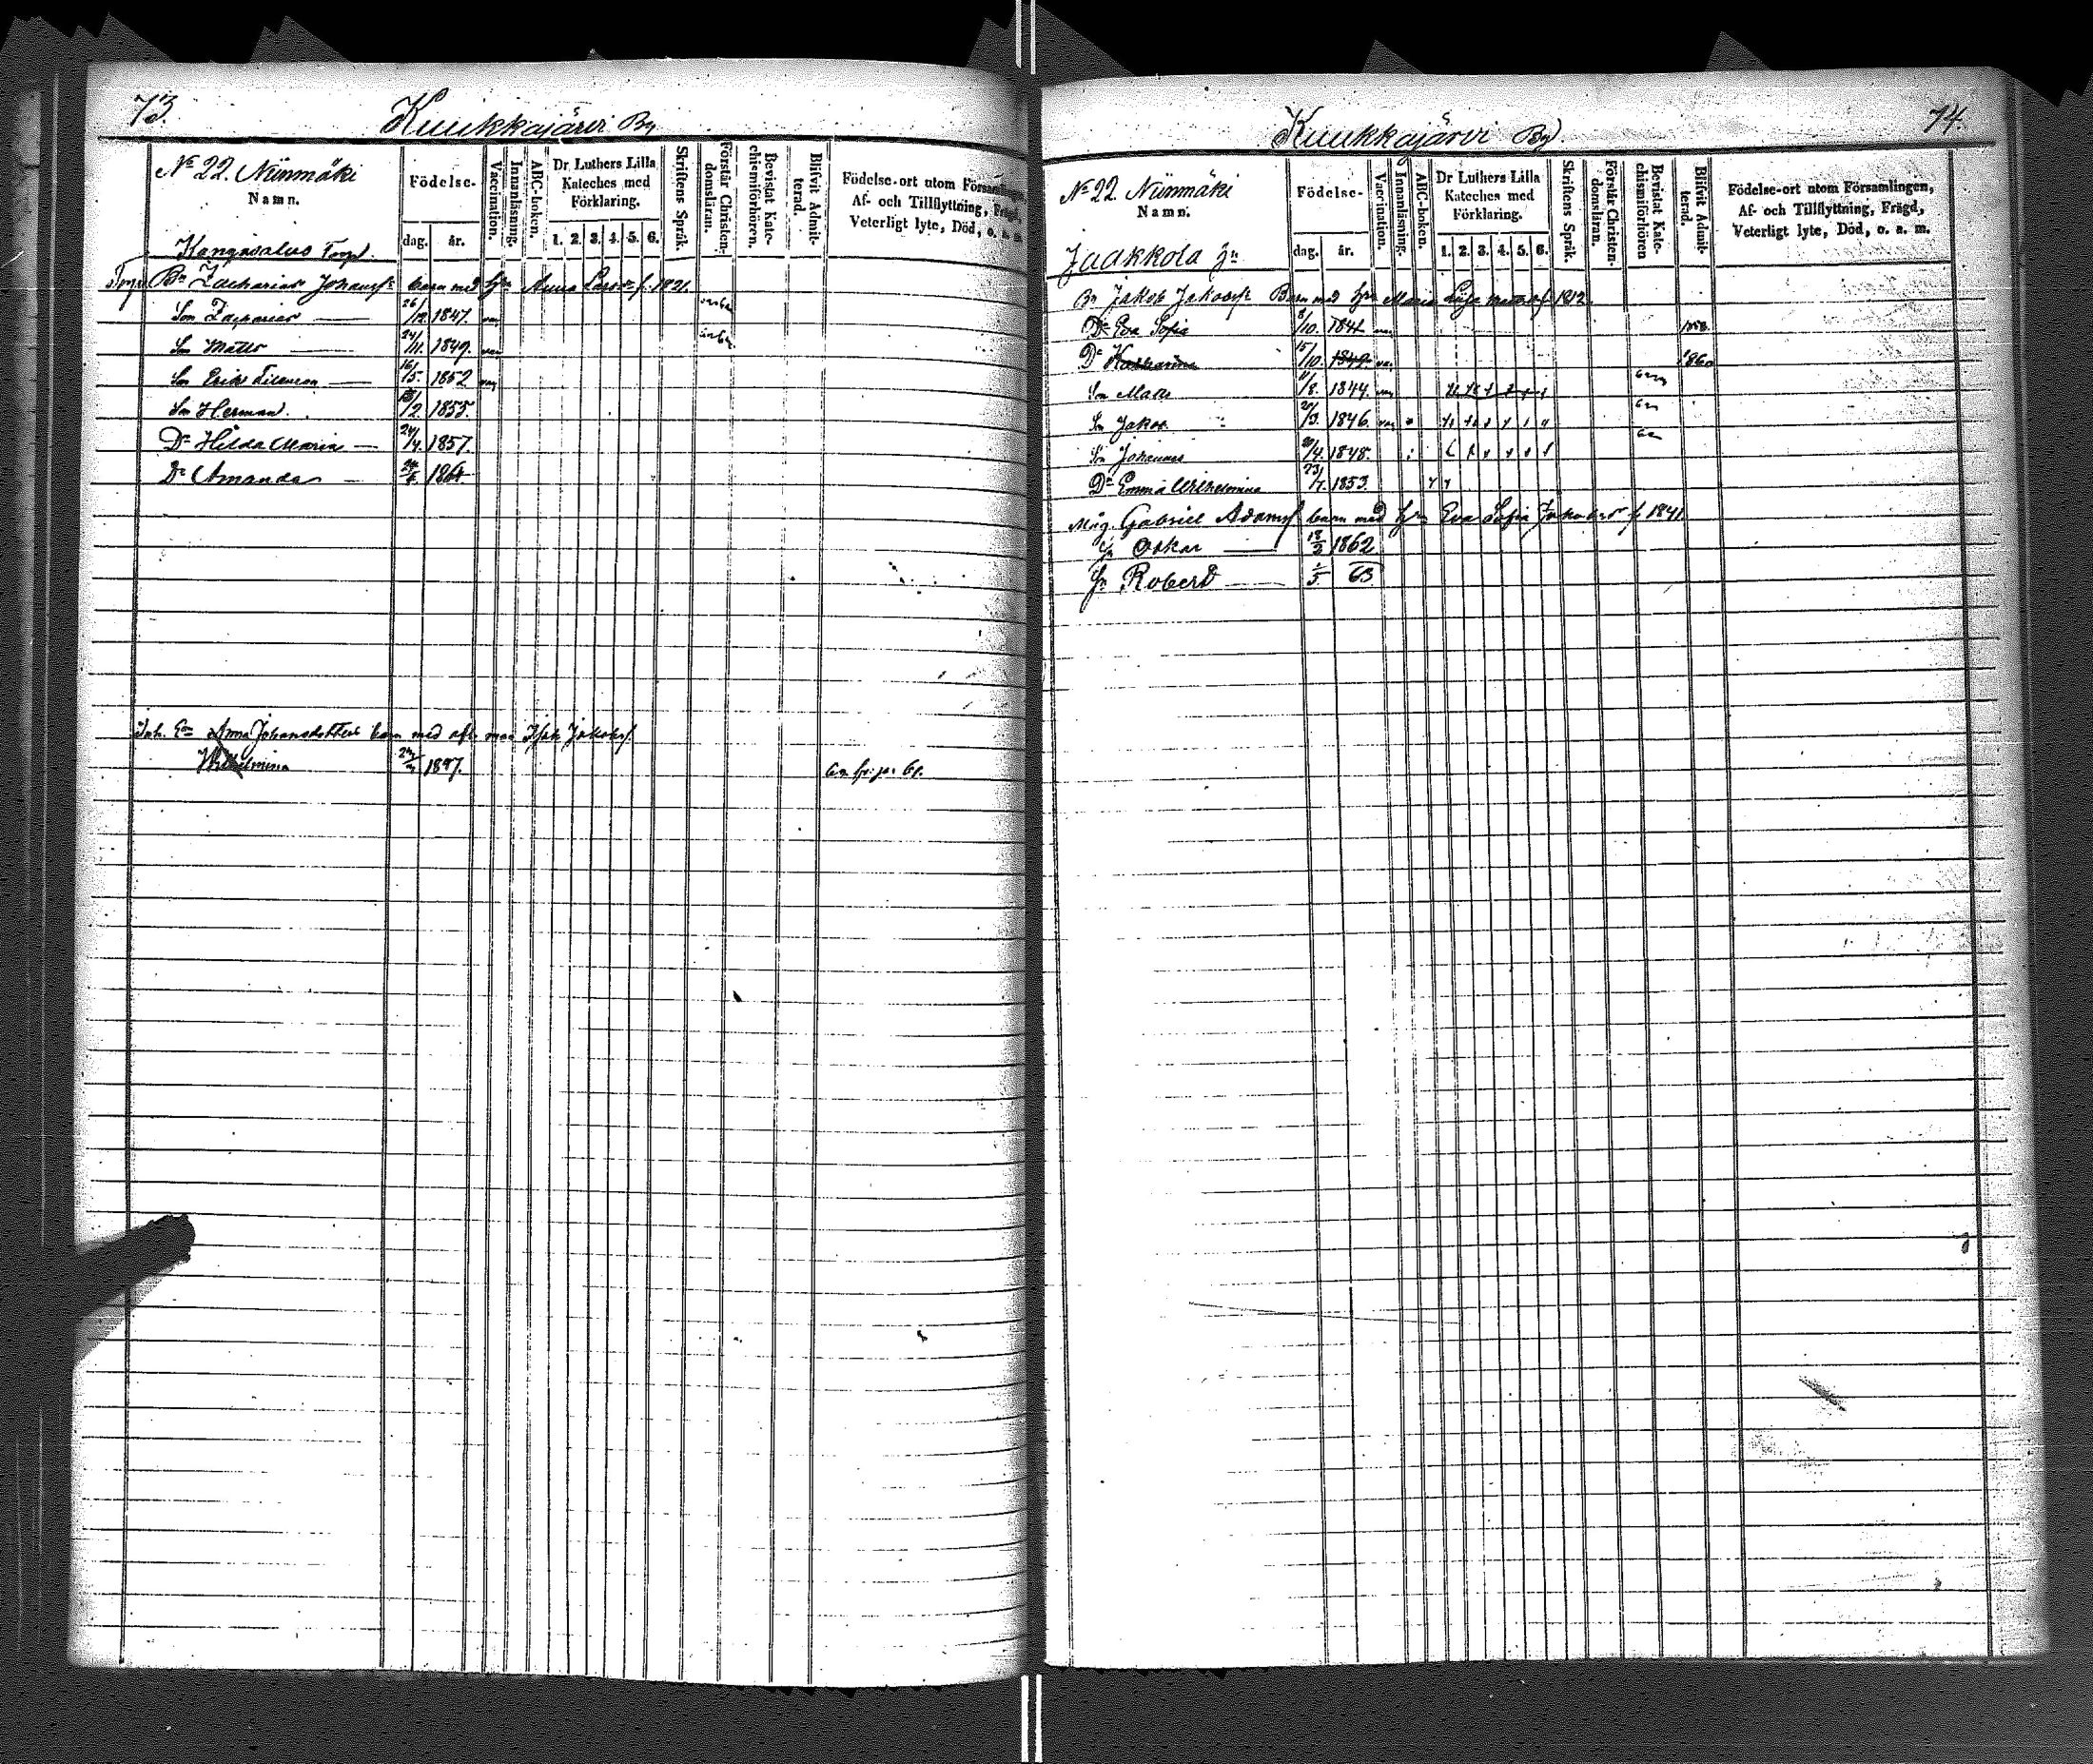 73.
Kuukkajärvi By
No 22. Niinmäki
Namn.
Födelse-
dag. år.
Vaccination.
Innanläsning.
ABC-boken.
Dr Luthers Lilla
Kateches med
Förklaring.
1. 2. 3. 4. 5. 6.
Skriftens Språk.
Förstår Christen-
domsläran.
Bevistat Kate-
chismiförhören.
Blifvit Admit-
terad.
Födelse-ort utom Församlingen,
Af- och Tillflyttning, Frägd,
Veterligt lyte, Död, o. a. m.
Kangasalus Torp.
Torp Bn Zacharias Johansf: barn med hn Anna f. 1821.
Son Zacharias 26/12. 1847. vac
Son Matts 24/11. 1849. vac
Son Erik 16/5. 1852 vac
Son Herman. /2. 1855.
Dr Hilda Maria 24/4. 1857.
Dr Amanda
Inh. En Anna Johansdotters barn med afl. man Jakobsf
Wilhelmina
74.
Kuukkajärvi By.
No 22. Niinmäki
Namn.
Födelse-
dag. år.
Vaccination.
Innanläsning.
ABC-boken.
Dr Luthers Lilla
Kateches med
Förklaring.
1. 2. 3. 4. 5. 6.
Skriftens Språk.
Förstår Christen-
domsläran.
Bevistat Kate-
chismiförhören
Blifvit Admit-
terad.
Födelse-ort utom Församlingen,
Af- och Tillflyttning, Frägd,
Veterligt lyte, Död, o. a. m.
Jaakkola
Bn Jakob Jakobsf: Barn med hn Maria f. 1812
Dr Eva Sofia 8/10. 1841 vac
Dr Katharina 15/10. vac 1860
Son Matts /8. 1844. vac
Son Jakob /3. 1846. vac
Son Johannes /4. 1848.
Dr Emma Wilhelmina 23/7. 1853.
Måg. Gabriel Adamsf barn med hn Eva Sofia Jakobsd f. 1841.
Sn Oskar 18/2 1862
Sn Robert 1/5 63